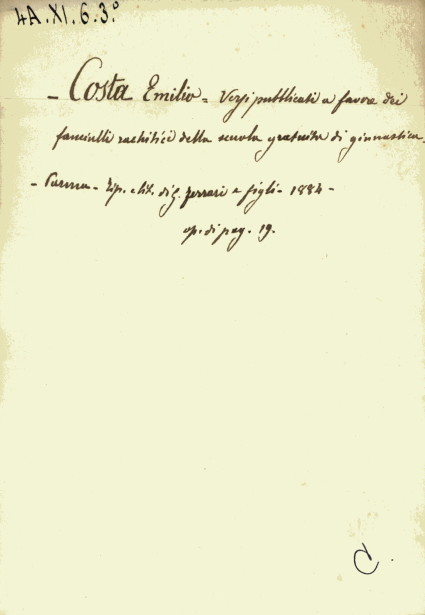 4A.XI.6.3.°
- Costa Emilio = Versi pubblicati a favore dei
fanciulli rachitici della scuola gratuita di ginnastica.
- Parma - Tip. e lit. di G. Ferrari e figli - 1884 -
op. di pag. 19.
C.